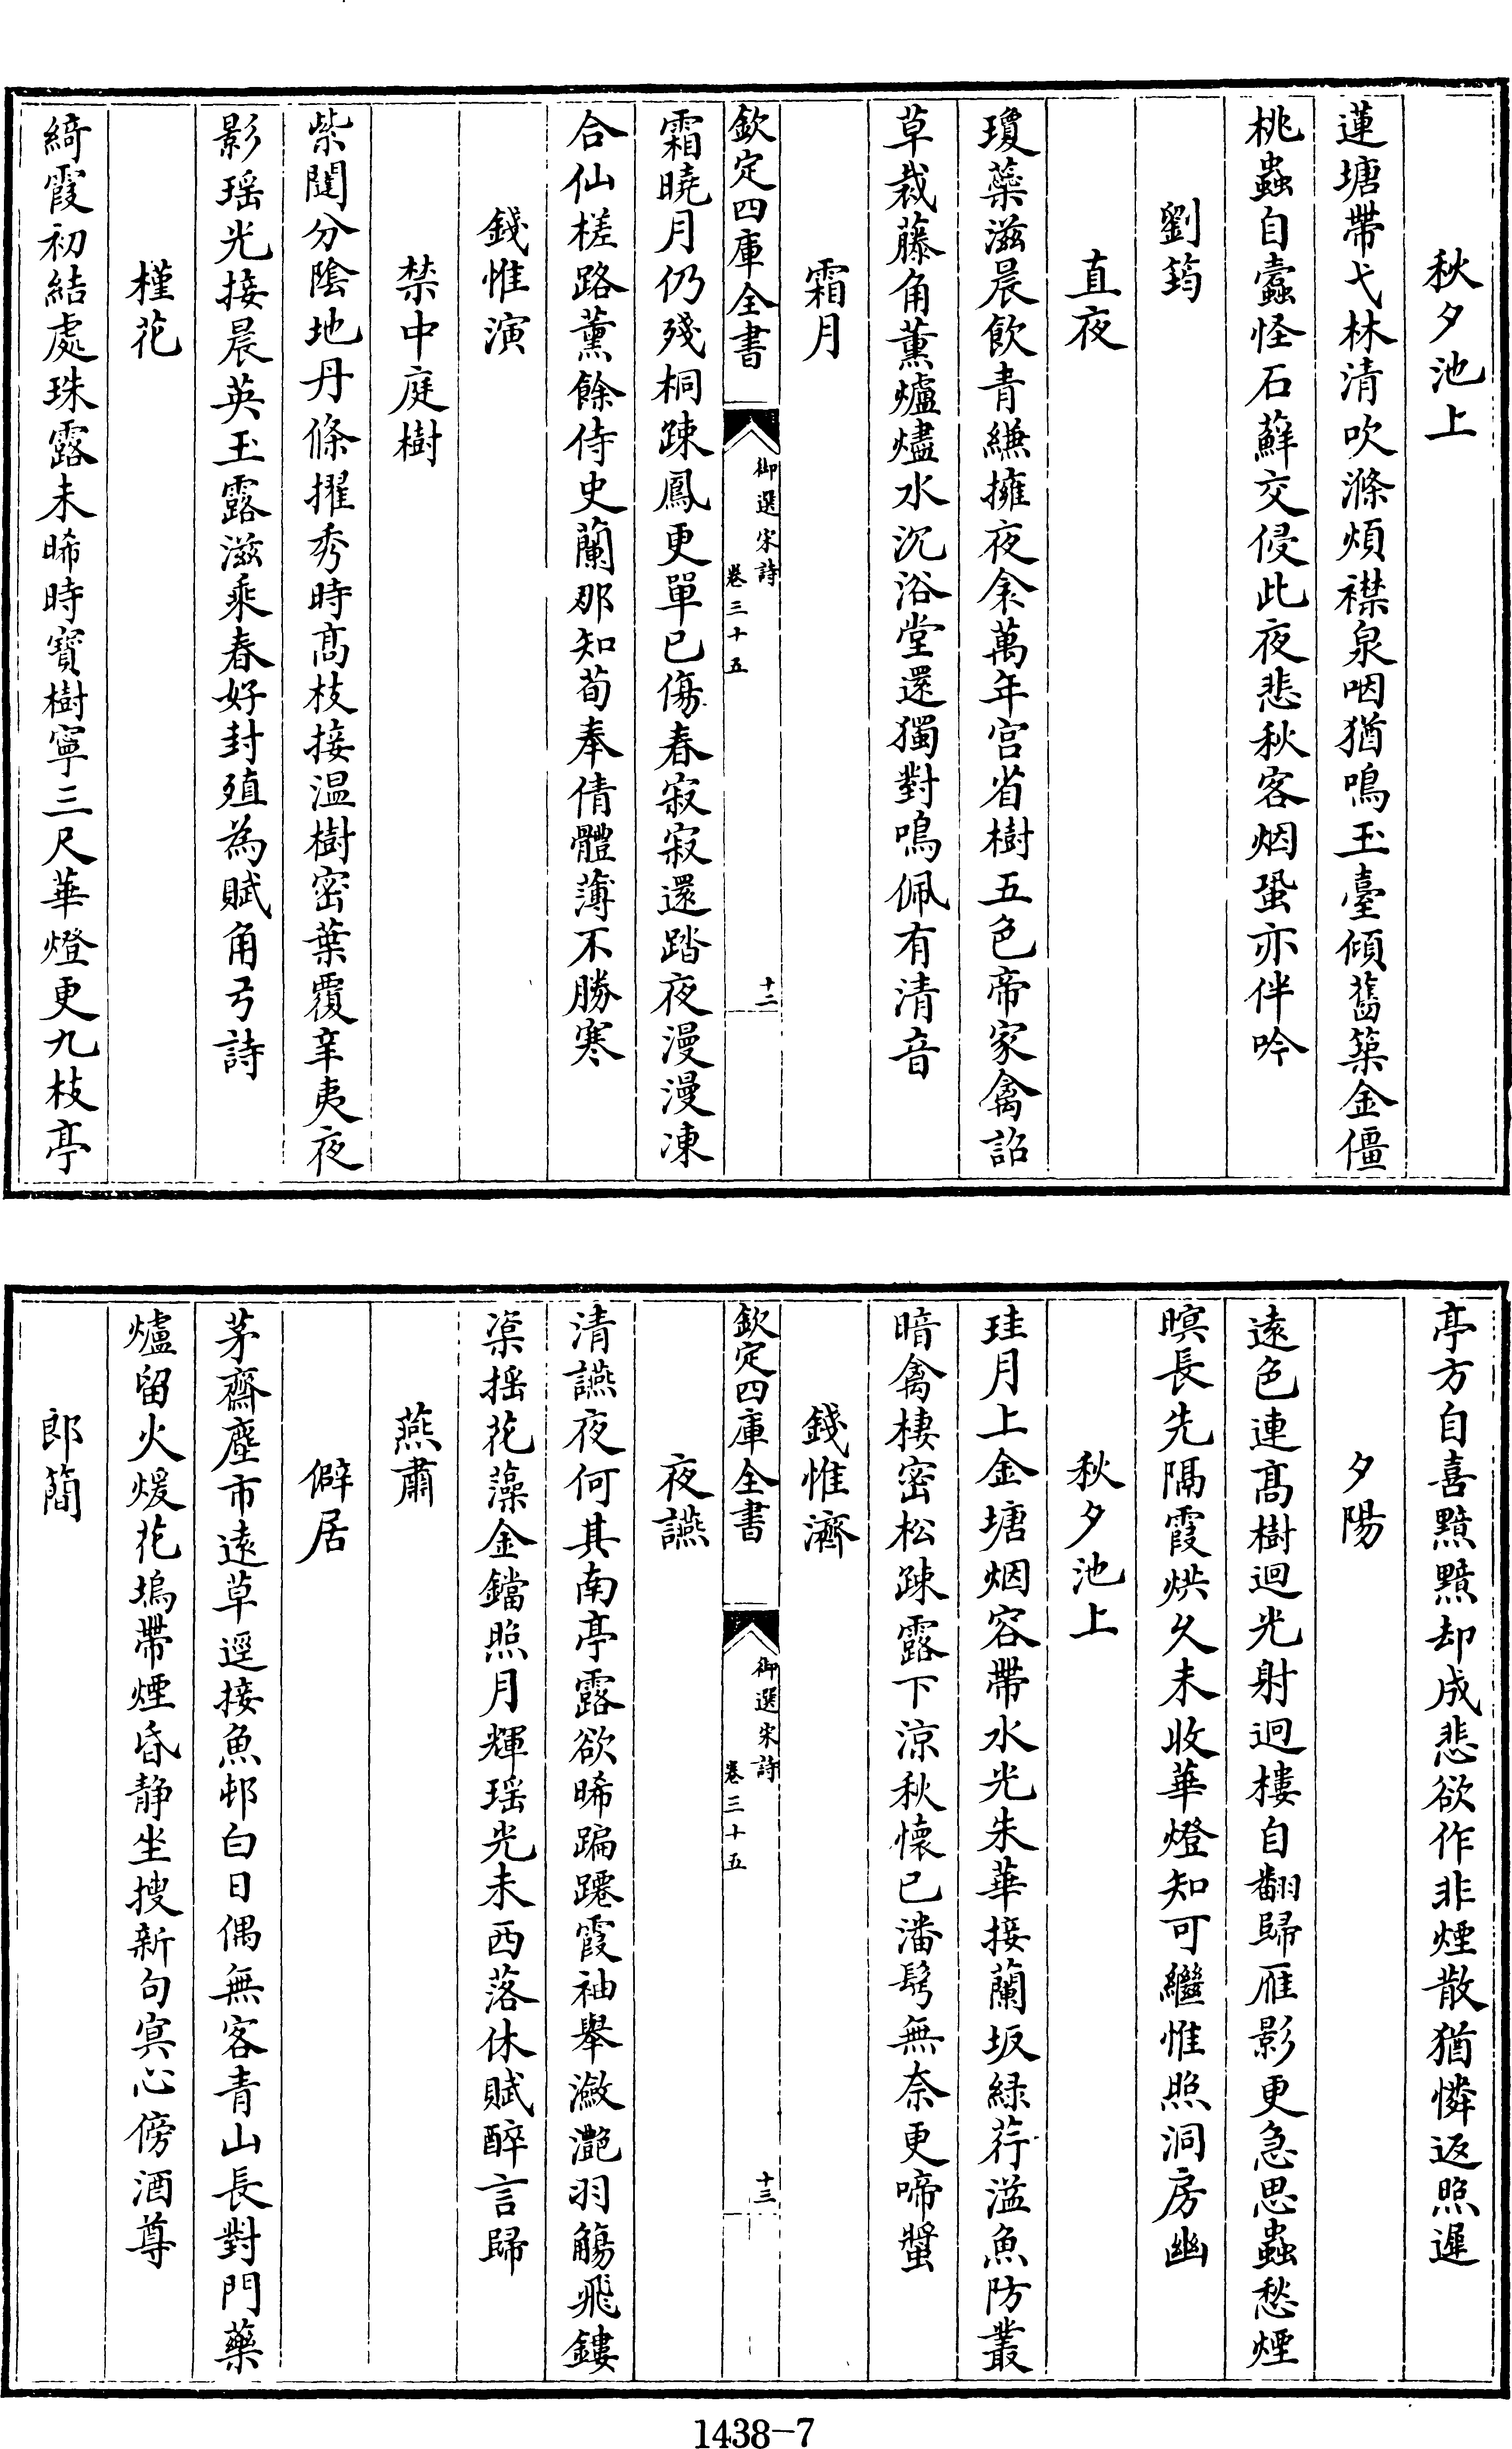 秋夕池上
蓮塘帶弋林清吹滌煩襟泉咽猶鳴玉臺傾舊築金僵
桃蟲自蠧怪石蘚交侵此夜悲秋客烟蛩亦伴吟
劉筠
直夜
瓊蘂滋晨飲青縑擁夜衾萬年宫省樹五色帝家禽詔
草裁藤角薰爐燼水沉浴堂還獨對鳴佩有清音
霜月
欽定四庫全書
御選宋詩
卷三十五
十二
霜曉月仍殘桐疎鳳更單已傷春寂寂還踏夜漫漫凍
合仙槎路薰餘侍史蘭那知荀奉倩體薄不勝寒
錢惟演
禁中庭樹
紫闥分陰地丹條擢秀時髙枝接温樹密葉覆辛夷夜
影瑶光接晨英玉露滋乘春好封殖為賦角弓詩
槿花
綺霞初結處珠露未晞時寳樹寧三尺華燈更九枝亭
亭方自喜黯黯却成悲欲作非煙散猶憐返照遲
夕陽
遠色連髙樹迴光射迥樓自翻歸雁影更急思蟲愁煙
暝長先隔霞烘久未收華燈知可繼惟照洞房幽
秋夕池上
珪月上金塘烟容帶水光朱華接蘭坂緑荇溢魚防叢
暗禽棲密松疎露下涼秋懐已潘鬂無奈更啼螿
錢惟濟
欽定四庫全書
御選宋詩
卷三十五
十三
夜讌
清讌夜何其南亭露欲晞蹁躚霞袖舉瀲灔羽觴飛鏤
渠揺花藻金鐺照月輝瑶光未西落休賦醉言歸
燕肅
僻居
茅齋塵市遠草逕接魚邨白日偶無客青山長對門藥
爐留火煖花塢帶煙昏静坐搜新句㝠心傍酒尊
郎簡
1438-7